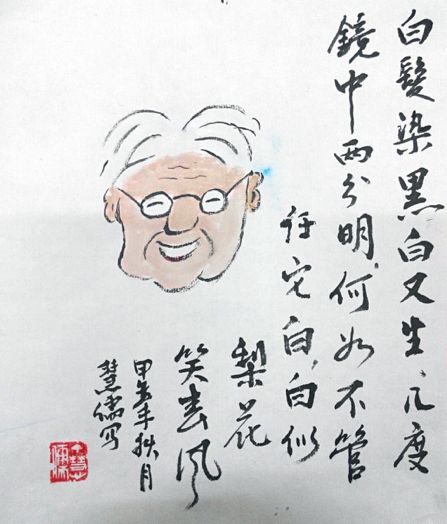 白髮染黑白又生,几度
鏡中两分明,何如不管
任它白,白似
梨花
笑春风
甲午年秋月
慧儒写